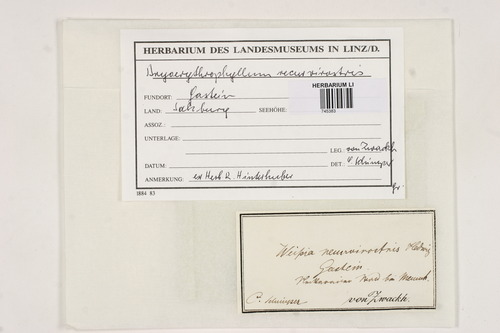 HERBARIUM DES LANDESMUSEUMS IN LINZ/D.
Bryoerythrophyllum recurvirostris
HERBARIUM LI
FUNDORT: Gastein
LAND: Salzburg SEEHÖHE:
ASSOZ.:
UNTERLAGE:
LEG.: von Zwackh
DATUM: DET.:
ANMERKUNG: ex Herb R. Hinterhuber
1884 83
Weisia recurvirostris Hedwig
Gastein.
von Zwackh.